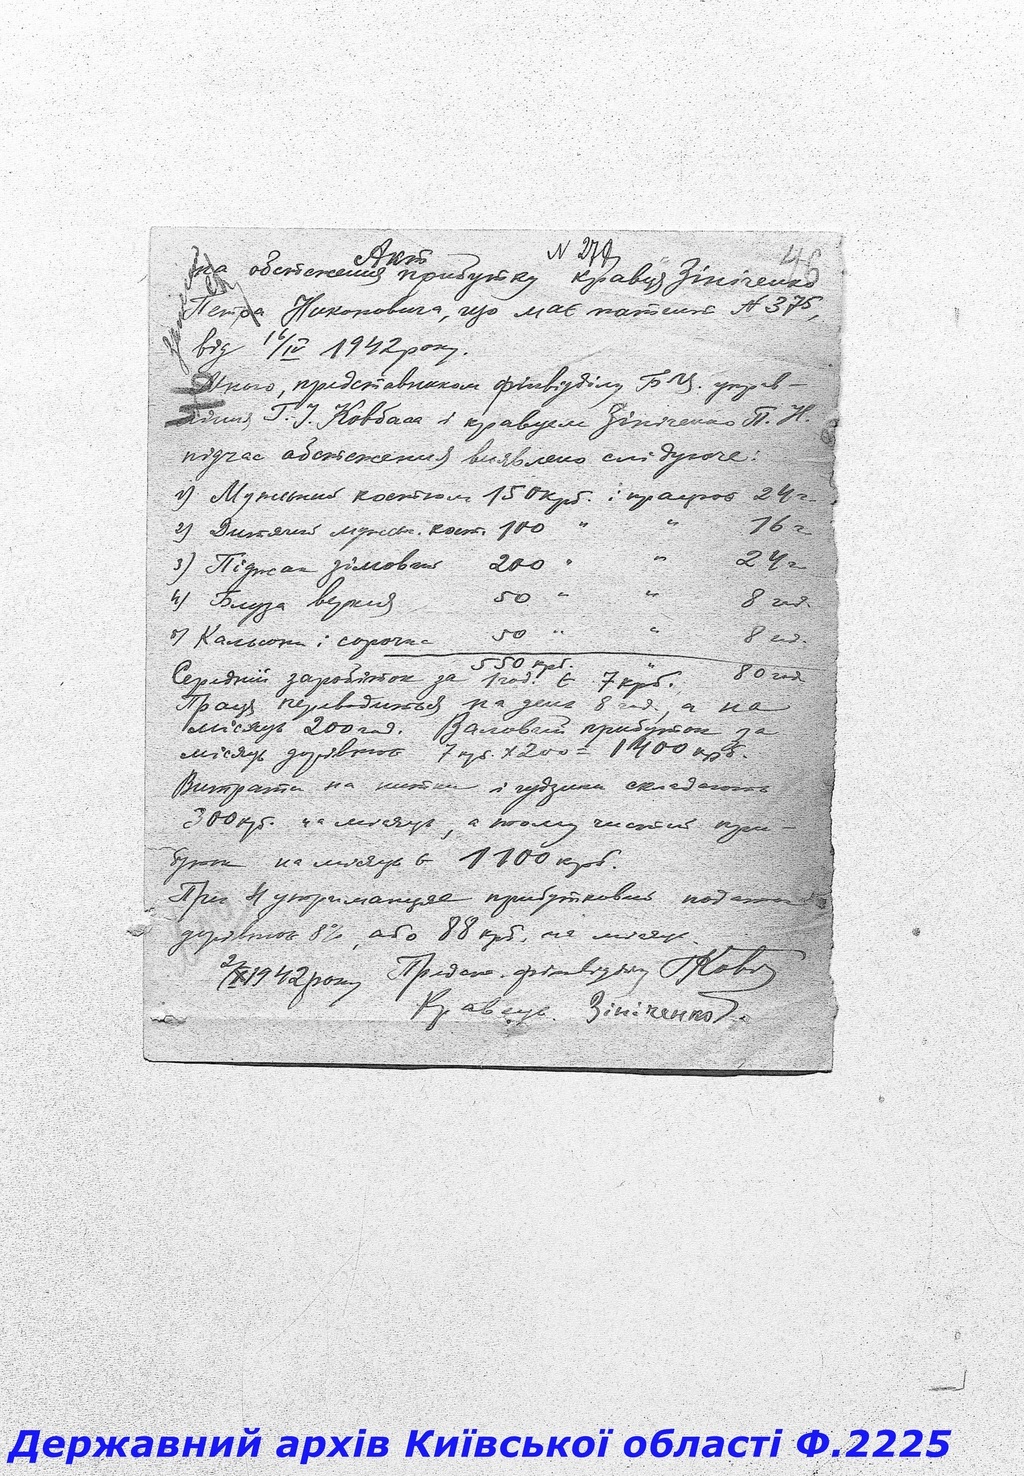 46
Акт N 279
на обстеження прибутку кравця Зініченко
Петра Никоновича, що має патент N 375,
від 16/IV 1942 року.
Мною, представником фінвідділу Б.Ц. управ-
ління Г.І. Ковбаса і кравцем Зініченко П. Н.
підчас обстеження виявлено слідуюче:
1) Мужський костюм 150 крб. і працював 24 г.
2) Дитячий мужськ. кост. 100 " " 16 г
3) Піджак зімовий 200 " " 24 г
4) Блуза верхня 50 " " 8 год.
5) Кальсони і сорочка 50 " " 8 год.
550 крб. " 80 год
Середній заробіток за 1 год. є 7 крб.
Праця переводиться на день 8 год., а на
місяць 200 год. Валовий прибуток за
місяць дорівнює 7 крб. х 200 = 1400 крб.
Витрати на нитки і гудзики складають
300 крб. на місяць, а тому чистий при-
буток на місяць є 1100 крб.
При 4 утриманцях прибутковий податок
дорівнює 8%, або 88 крб. на місяць.
2/X 1942 року Предст. фінвідділу ГКовб
Кравець. Зініченко
Державний архів Київської області Ф.2225